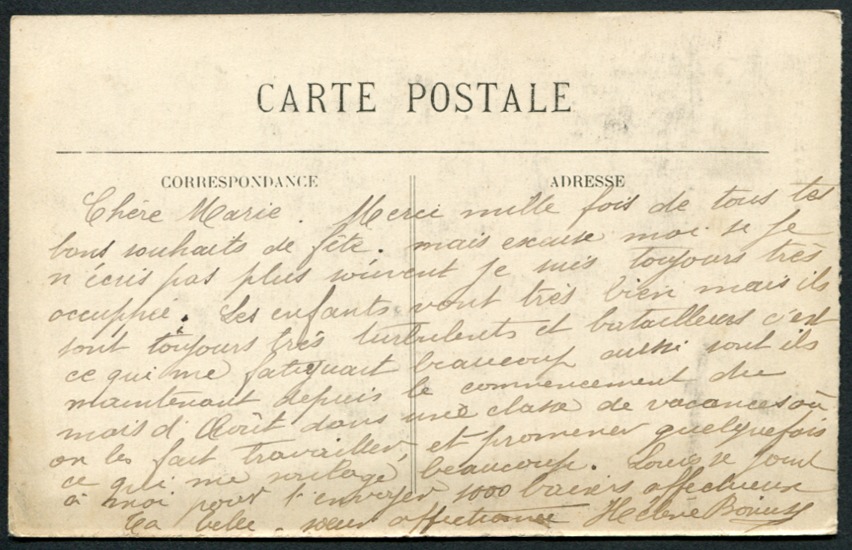 CARTE POSTALE
CORRESPONDANCE
ADRESSE
Chère Marie. Merci mille fois de tous tes
bons souhaits de fête. mais excuse moi si je
n'écris pas plus souvent je suis toujours très
occupée. Les enfants vont très bien mais ils
sont toujours très turbulents et batailleurs c'est
ce qui me fatiguait beaucoup aussi sont ils
maintenant depuis le commencement du
mois d'Août dans une classe de vacances où
on les fait travailler, et promener quelquefois
ce qui me soulage beaucoup. Louis se joint
à moi pour t'envoyer 1000 baisers affectueux
Ta belle-sœur affectionnée Hélène